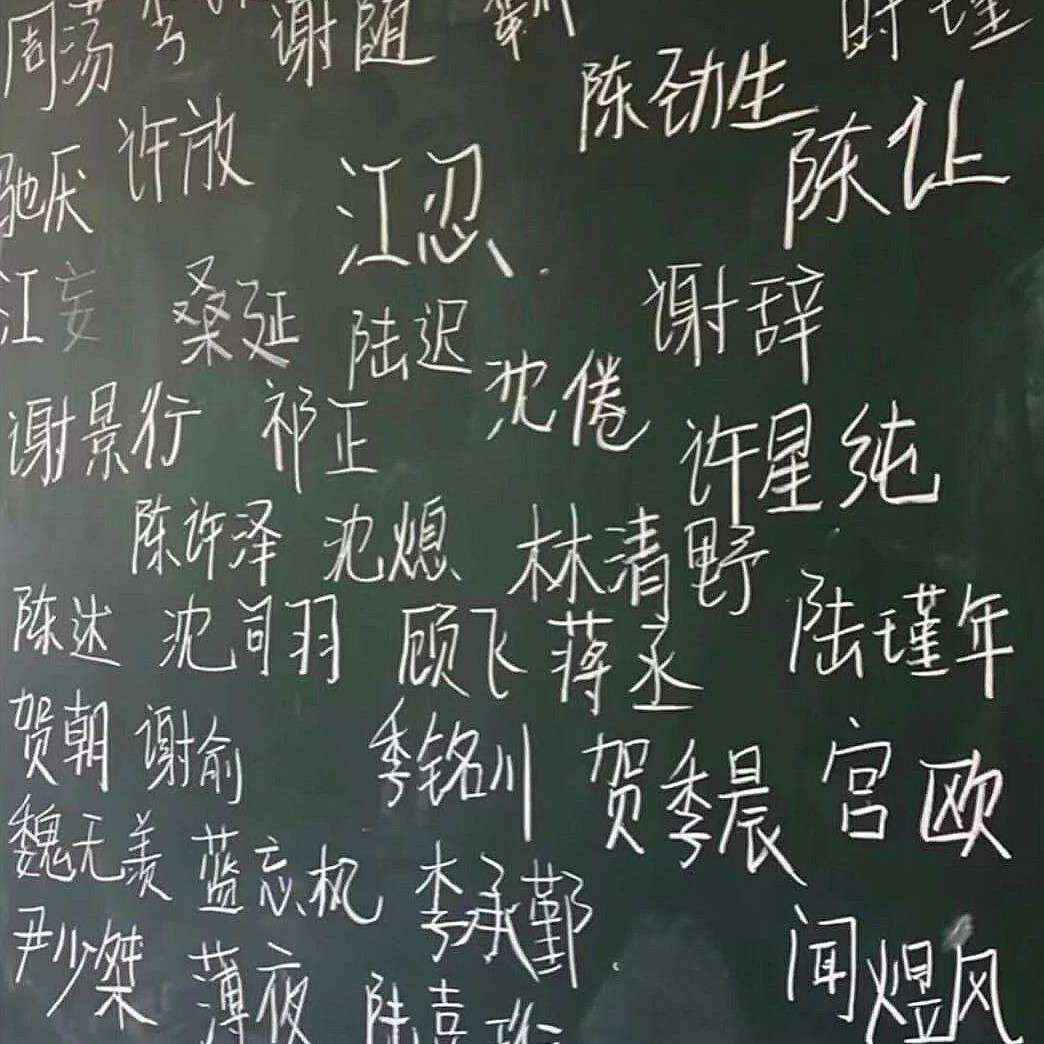 周荡 谢随 时瑾
陈劲生
驰厌 许放 江忍 陈让
江妄 桑延 陆迟 谢辞
谢景行 祁正 沈倦 许星纯
陈许泽 沈熄 林清野
陈达 沈司羽 顾飞 蒋丞 陆瑾年
贺朝 谢俞 季铭川 贺季晨 宫欧
魏无羡 蓝忘机 李承鄞
尹少桀 薄夜 陆喜珩 闻煜风